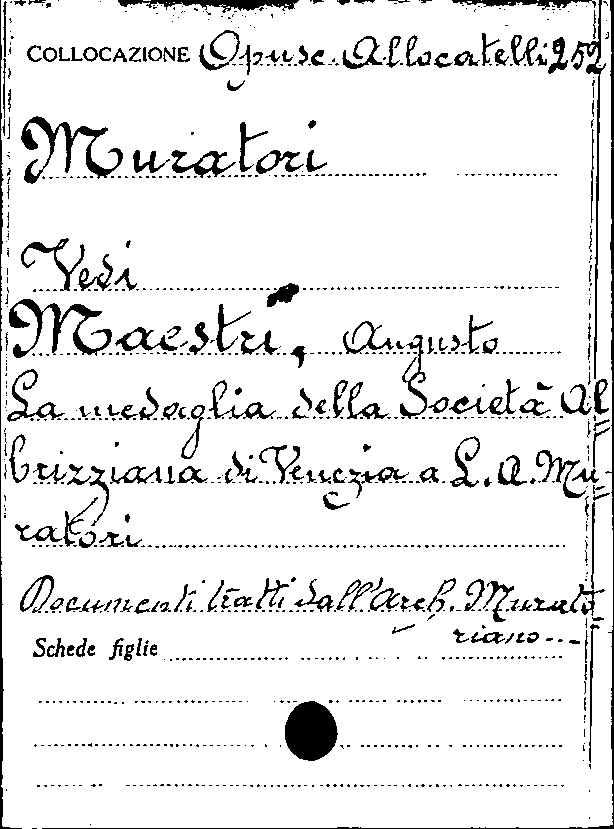 COLLOCAZIONE Opusc. Allocatelli 252
Muratori
Vedi
Maestri, Augusto
La medaglia della Società Al=
brizziana di Venezia a L. A. Mu=
ratori
Documenti tratti dall'Arch. Murato=
riano...
Schede figlie